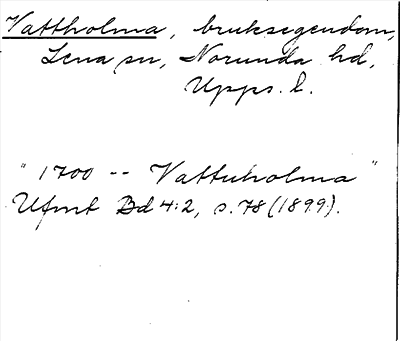 Vattholma, bruksegendom,
Lena sn, Norunda hd,
Upps. l.
"1700 -- Vattuholma"
Ufmt Bd 4:2, s. 78 (1899).